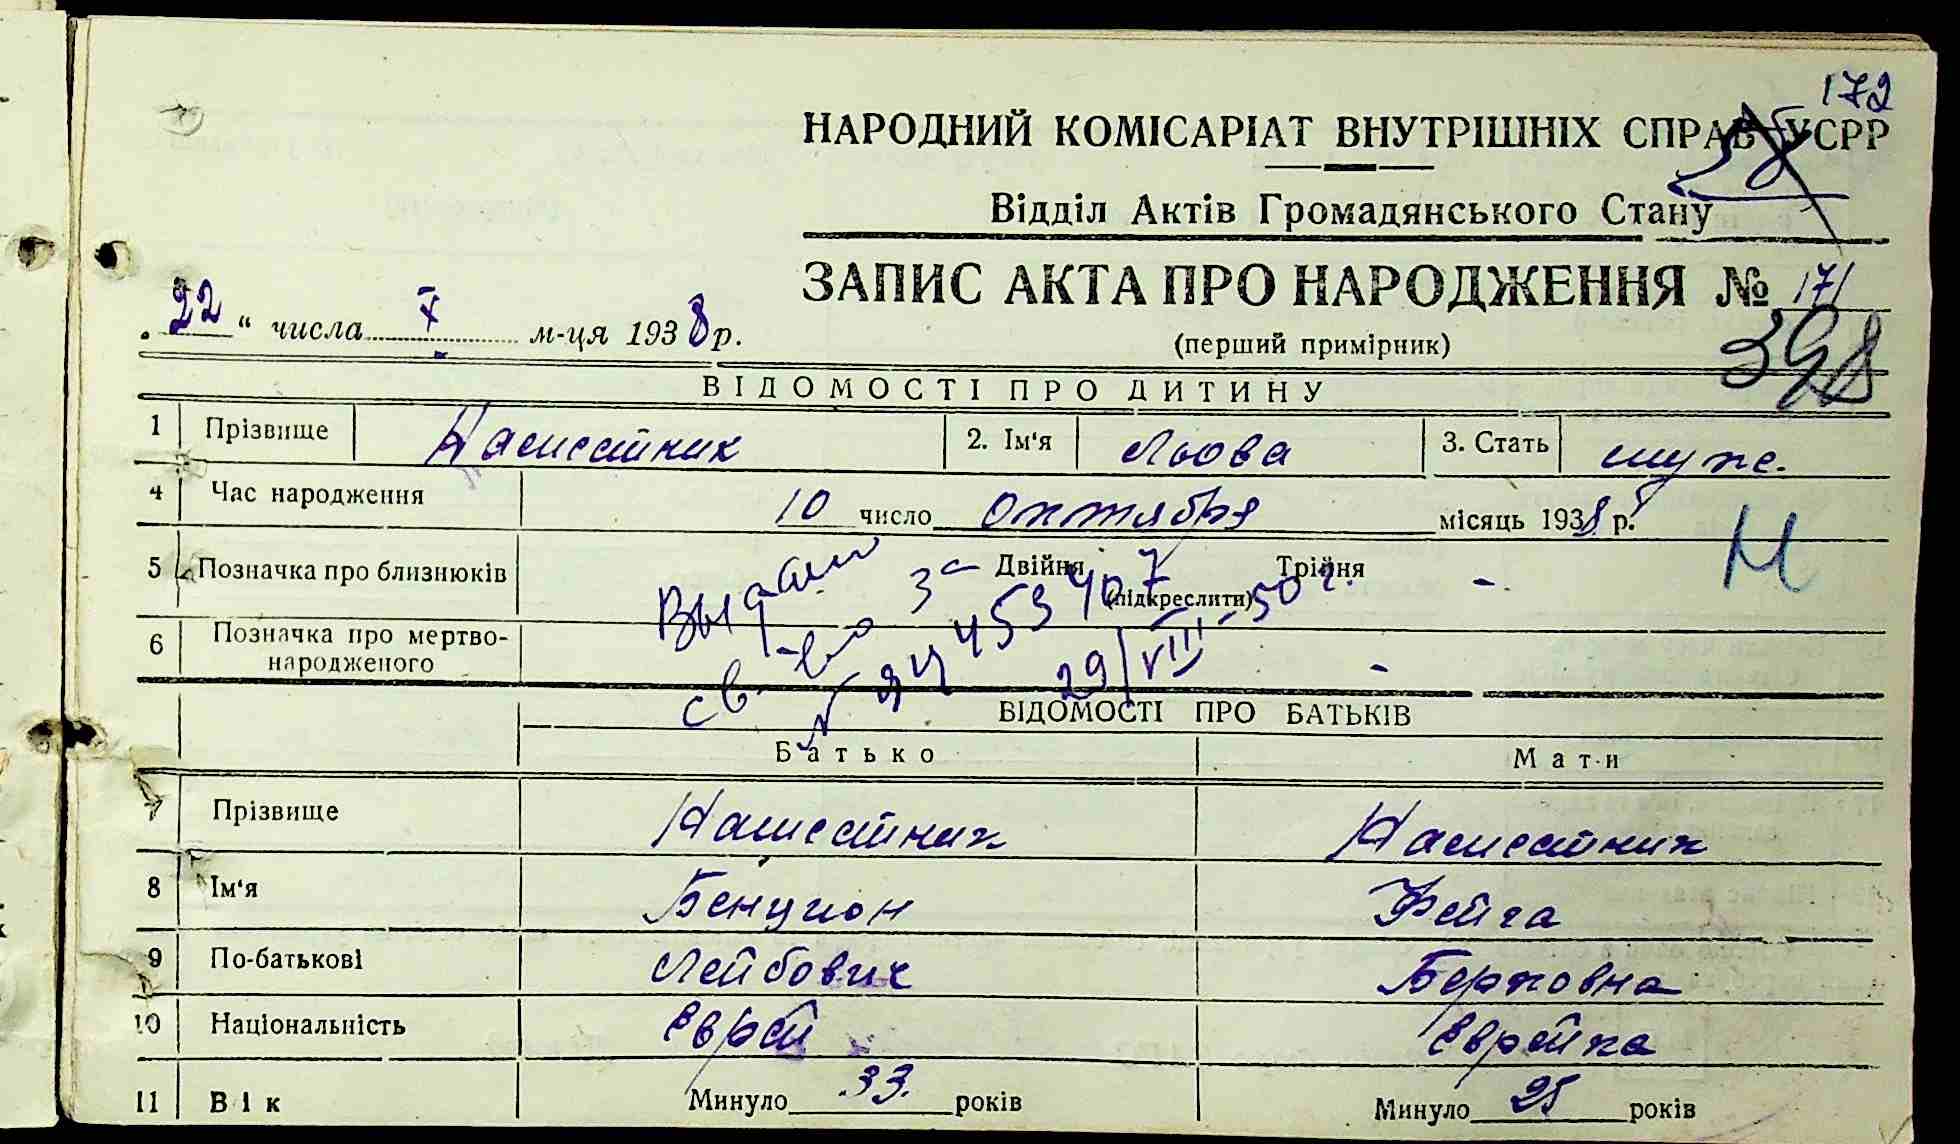 172
НАРОДНИЙ КОМІСАРІАТ ВНУТРІШНІХ СПРАВ УСРР
Відділ Актів Громадянського Стану
ЗАПИС АКТА ПРО НАРОДЖЕННЯ № 171
„ 22 “ числа X м-ця 1938 р.
(перший примірник)
398
ВІДОМОСТІ ПРО ДИТИНУ
1 Прізвище 2. Ім'я Льова 3. Стать муж.
4 Час народження 10 число октября місяць 1938 р.
М
5 Позначка про близнюків Двійня Трійня -
(підкреслити)
6 Позначка про мертво-
народженого -
Выдан
св-во за
№ 453407
29/VIII-50 г.
ВІДОМОСТІ ПРО БАТЬКІВ
Батько Мати
7 Прізвище
8 Ім'я Бенцион Фейга
9 По-батькові Лейбович Берковна
10 Національність Еврей Еврейка
11 Вік Минуло 33 років Минуло 25 років